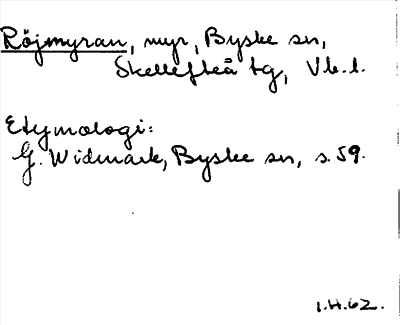 Röjmyran, myr, Byske sn,
Skellefteå tg, Vb. l.
Etymologi:
G. Widmark, Byske sn, s. 59.
1.H.62.